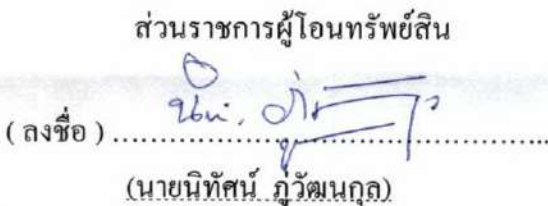 ส่วนราชการผู้โอนทรัพย์สิน
( ลงชื่อ )..........................................................
(นายนิทัศน์ ภู่วัฒนกุล)